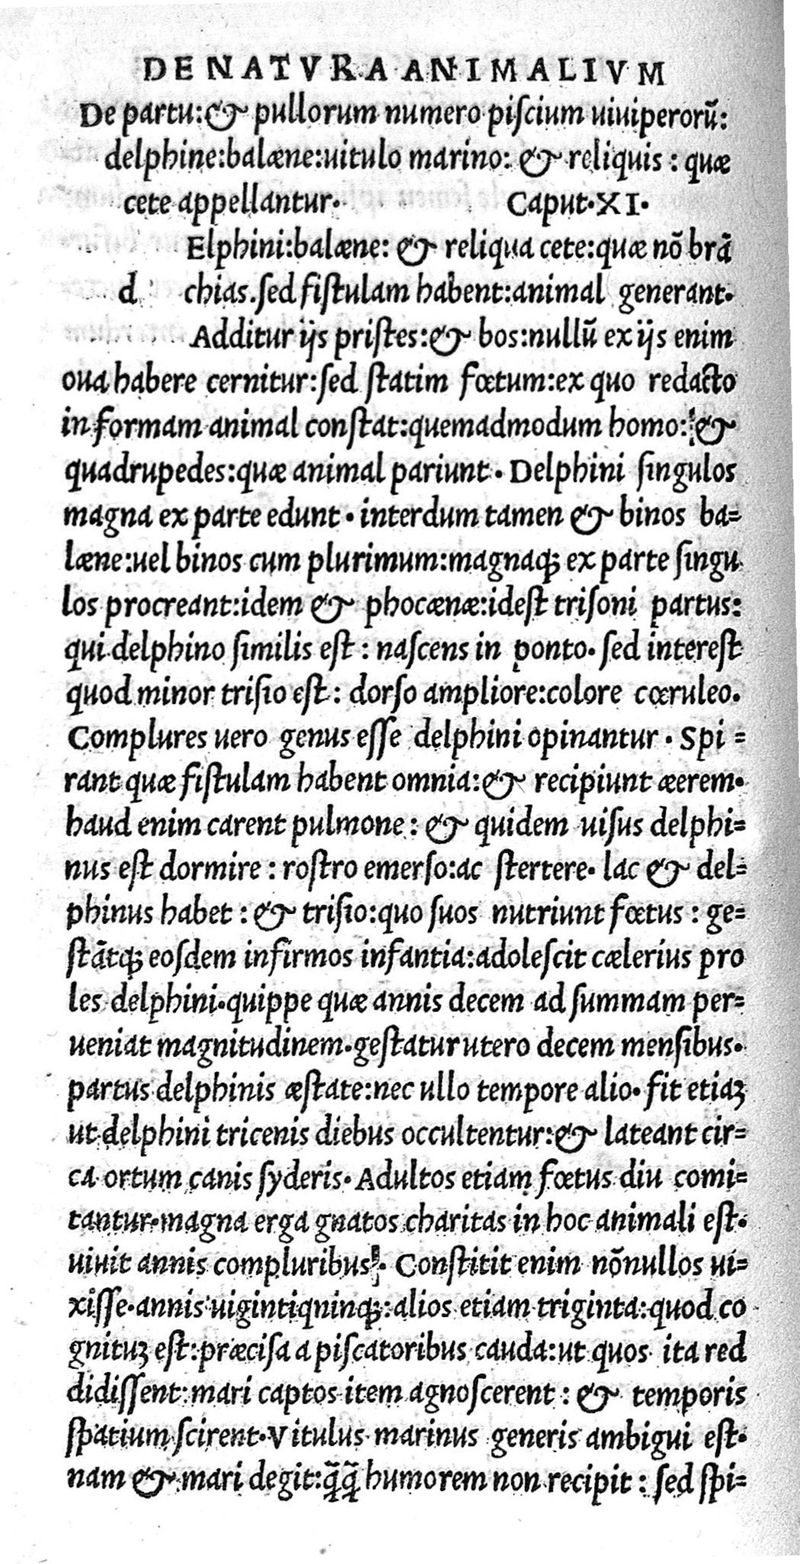 DE NATVRA ANIMALIVM
De partu:& pullorum numero piſcium uiuiperorū:
delphine:balæne:uitulo marino: & reliquis : quæ
cete appellantur· Caput·XI·
Elphini:balæne: & reliqua cete:quæ nō brā
d chias.ſed fiſtulam habent:animal generant·
Additur ijs priſtes:& bos:nullū ex ijs enim
oua habere cernitur:ſed ſtatim fœtum:ex quo redacto
in formam animal conſtat:quemadmodum homo:&
quadrupedes:quæ animal pariunt · Delphini ſingulos
magna ex parte edunt · interdum tamen & binos ba=
læne:uel binos cum plurimum:magnaꝗ; ex parte ſingu
los procreant:idem & phocænæ:ideſt triſoni partus:
qui delphino ſimilis eſt : naſcens in ponto· ſed intereſt
quod minor triſio eſt : dorſo ampliore:colore cœruleo.
Complures uero genus eſſe delphini opinantur · Spi =
rant quæ fiſtulam habent omnia:& recipiunt æerem·
haud enim carent pulmone : & quidem uiſus delphi=
nus eſt dormire : roſtro emerſo:ac ſtertere· lac & del=
phinus habet : & triſio:quo ſuos nutriunt fœtus : ge=
ſtātꝗ; eoſdem infirmos infantia:adoleſcit cælerius pro
les delphini·quippe quæ annis decem ad ſummam per=
ueniat magnitudinem·geſtatur utero decem menſibus·
partus delphinis æſtate:nec ullo tempore alio· fit etiaꝫ
ut delphini tricenis diebus occultentur:& lateant cir=
ca ortum canis ſyderis· Adultos etiam fœtus diu comi=
tantur·magna erga gnatos charitas in hoc animali eſt·
uiuit annis compluribus· Conſtitit enim nōnullos ui=
xiſſe·annis uigintiqninꝗ;:alios etiam triginta:quod co
gnituꝫ eſt:præciſa a piſcatoribus cauda:ut quos ita red
didiſſent:mari captos item agnoſcerent : & temporis
ſpatium ſcirent·Vitulus marinus generis ambigui eſt·
nam & mari degit:ꝗ̄ꝗ̄ humorem non recipit : ſed ſpi=